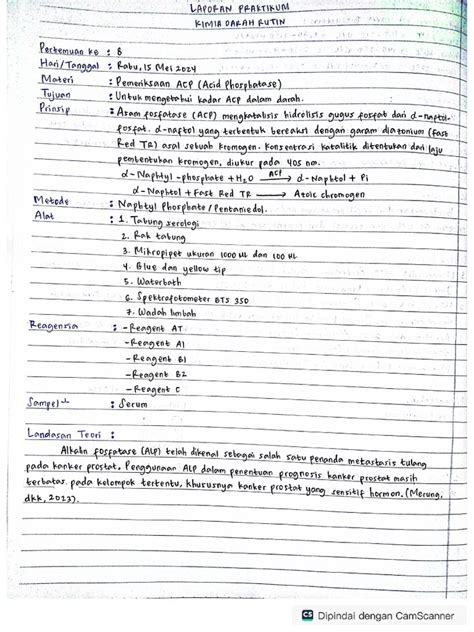 LAPORAN PRAKTIKUM
KIMIA DARAH RUTIN
Pertemuan ke : 8
Hari/Tanggal : Rabu, 15 Mei 2024
Materi : Pemeriksaan ACP (Acid Phosphatase)
Tujuan : Untuk mengetahui kadar ACP dalam darah.
Prinsip : Asam fosfatase (ACP) mengkatalisis hidrolisis gugus fosfat dari α-naptol-
fosfat. α-naptol yang terbentuk bereaksi dengan garam diatonium (Fast
Red TR) asal sebuah kromogen. Konsentrasi katalitik ditentukan dari laju
pembentukan kromogen, diukur pada 405 nm.
α-Naphtyl-phosphate + H2O ACP→ α-Naphtol + Pi
α-Naphtol + Fast Red TR → Atoic chromogen
Metode : Naphtyl Phosphate / Pentanediol.
Alat : 1. Tabung serologi
2. Rak tabung
3. Mikropipet ukuran 1000 µL dan 100 µL
4. Blue dan yellow tip
5. Waterbath
6. Spektrofotometer BTS 350
7. Wadah limbah
Reagensia : - Reagent AT
- Reagent A1
- Reagent B1
- Reagent B2
- Reagent C
Sampel : Serum
Landasan Teori :
Alkalin fosfatase (ALP) telah dikenal sebagai salah satu penanda metastasis tulang
pada kanker prostat. Penggunaan ALP dalam penentuan prognosis kanker prostat masih
terbatas pada kelompok tertentu, khususnya kanker prostat yang sensitif hormon. (Merung,
dkk, 2023).
CS Dipindai dengan CamScanner